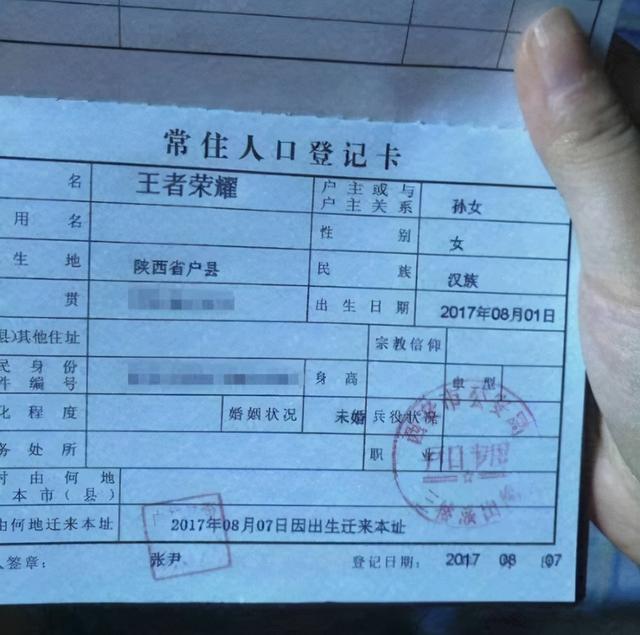 常住人口登记卡
名 王者荣耀 户主或与户主关系 孙女
用名 性别 女
生地 陕西省户县 民族 汉族
贯 出生日期 2017年08月01日
县)其他住址 宗教信仰
民身份
件编号 身高 血型
化程度 婚姻状况 未婚 兵役状况
务处所 职业
时由何地
本市(县)
由何地迁来本址 2017年08月07日因出生迁来本址
人签章: 张尹 登记日期: 2017 08 07
户口专用